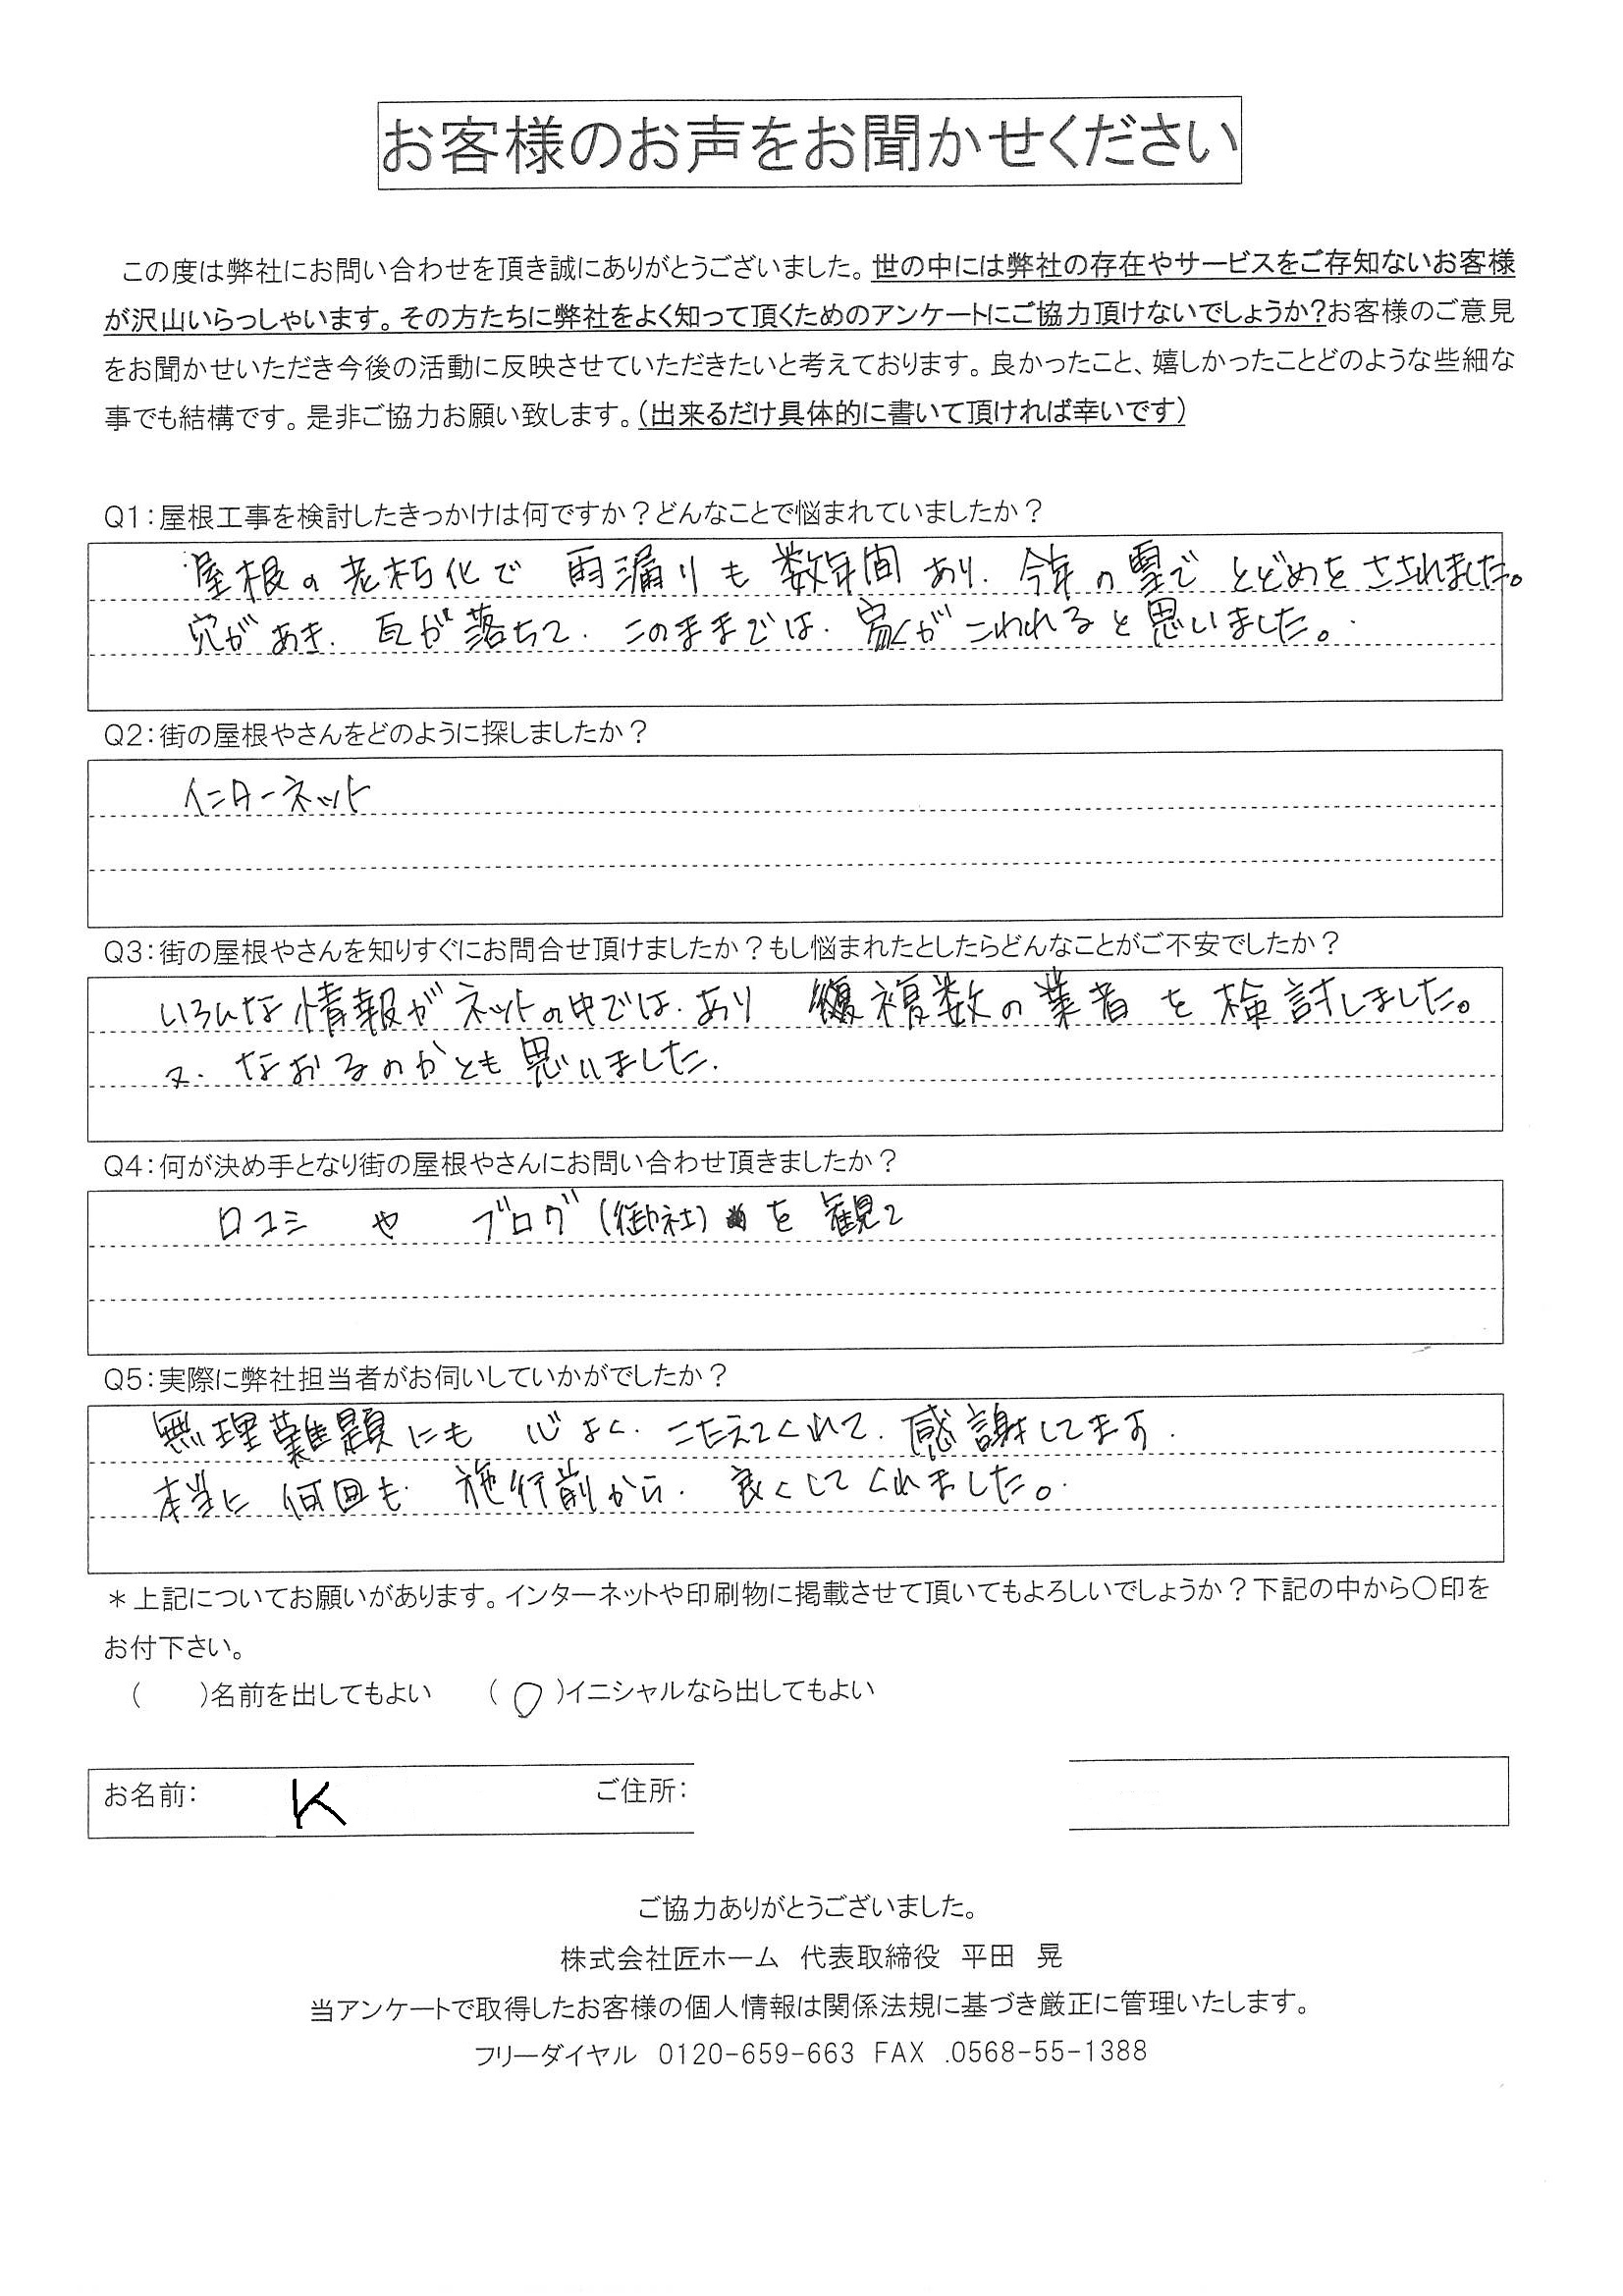 お客様のお声をお聞かせください
この度は弊社にお問い合わせを頂き誠にありがとうございました。世の中には弊社の存在やサービスをご存知ないお客様
が沢山いらっしゃいます。その方たちに弊社をよく知って頂くためのアンケートにご協力頂けないでしょうか?お客様のご意見
をお聞かせいただき今後の活動に反映させていただきたいと考えております。良かったこと、嬉しかったことどのような些細な
事でも結構です。是非ご協力お願い致します。(出来るだけ具体的に書いて頂ければ幸いです)
Q1:屋根工事を検討したきっかけは何ですか?どんなことで悩まれていましたか?
屋根の老朽化で 雨漏りも数年間あり、今年の雪で とどめをさされました。
穴があき、瓦が落ちて、このままでは、家がこわれると思いました。
Q2:街の屋根やさんをどのように探しましたか?
インターネット
Q3:街の屋根やさんを知りすぐにお問合せ頂けましたか?もし悩まれたとしたらどんなことがご不安でしたか?
いろんな情報がネットの中では、あり 複数の業者を検討しました。
又、なおるのかとも思いました.
Q4:何が決め手となり街の屋根やさんにお問い合わせ頂きましたか?
口コミ や ブログ(御社)を観て
Q5:実際に弊社担当者がお伺いしていかがでしたか?
無理難題にも 心よく、こたえてくれて、感謝してます.
本当に何回も、施行前から、良くしてくれました。
*上記についてお願いがあります。インターネットや印刷物に掲載させて頂いてもよろしいでしょうか?下記の中から〇印を
お付下さい。
( )名前を出してもよい (〇)イニシャルなら出してもよい
お名前: K ご住所:
ご協力ありがとうございました。
株式会社匠ホーム 代表取締役 平田 晃
当アンケートで取得したお客様の個人情報は関係法規に基づき厳正に管理いたします。
フリーダイヤル 0120-659-663 FAX .0568-55-1388